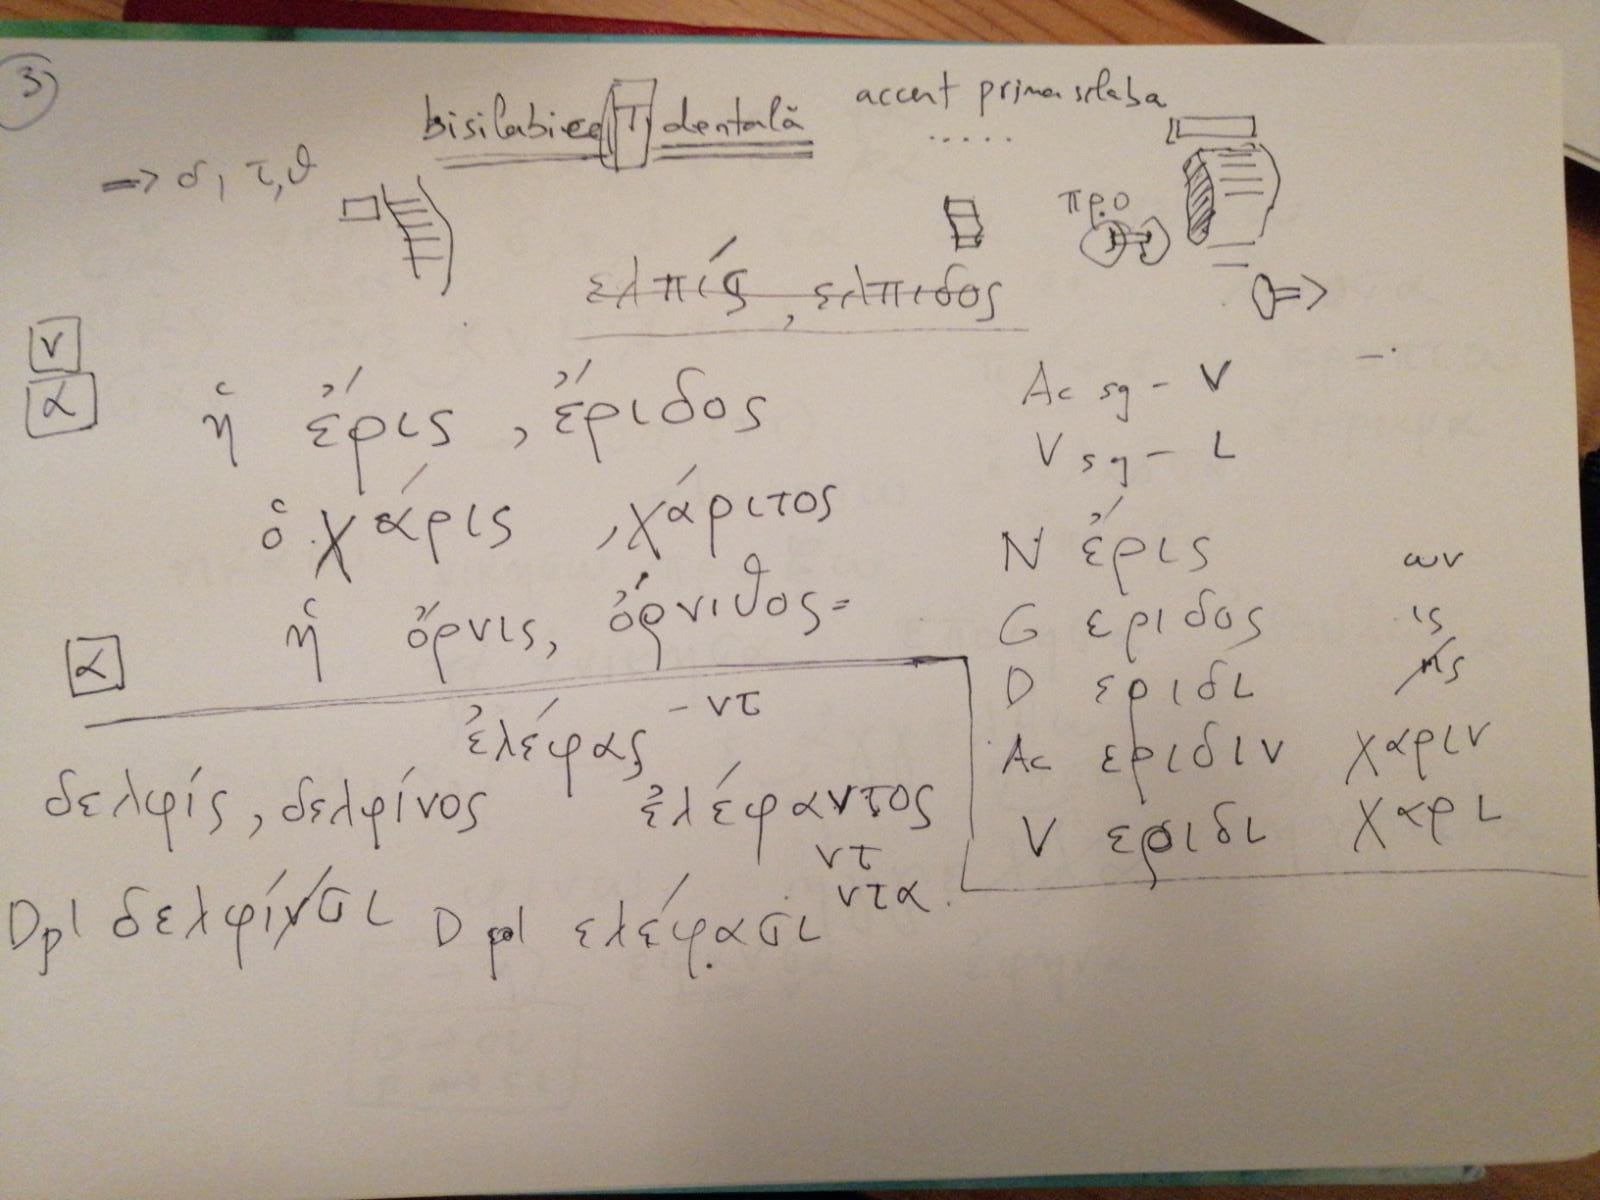 3
bisilabice T dentală
accent prima silaba
=> δ, τ, θ
.....
πρ.ο
ελπίς, ελπιδος
ν
α
ἡ ἔρις, ἔριδος
ὁ χάρις, χάριτος
ἡ ὄρνις, ὄρνιθος=
α
Ac sg - ν
V sg - ι
N ἔρις
G εριδος
D εριδι
Ac εριδιν χαριν
V εριδι χαρι
ων
ις
ἐλέφας - ντ
δελφίς, δελφίνος
ἐλέφαντος
ντ
ντα
D pl δελφίνσι
D pl ελέφασι